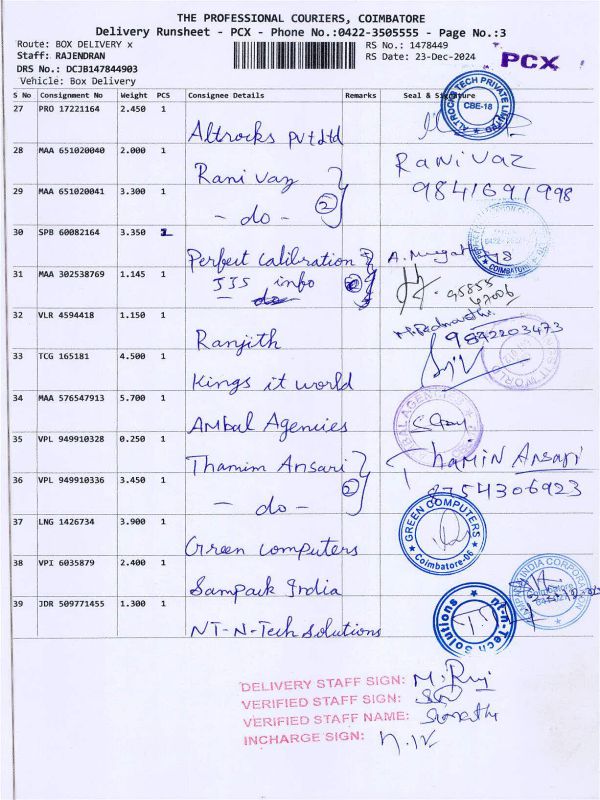 THE PROFESSIONAL COURIERS, COIMBATORE
Delivery Runsheet - PCX - Phone No.:0422-3505555 - Page No.:3
Route: BOX DELIVERY x
RS No.: 1478449
Staff: RAJENDRAN
RS Date: 23-Dec-2024
PCX
DRS No.: DCJB147844903
Vehicle: Box Delivery
S No Consignment No Weight PCS Consignee Details Remarks Seal & Signature
ALTROCKS TECH PRIVATE LIMITED
CBE-18
27 PRO 17221164 2.450 1
Altrocks pvt ltd
28 MAA 651020040 2.000 1
Rani vaz
RANI VAZ
29 MAA 651020041 3.300 1
2
9841691998
- do -
30 SPB 60082164 3.350 1
COIMBATORE
Perfect Calibration
31 MAA 302538769 1.145 1
JJS info
95855
47006
32 VLR 4594418 1.150 1
9842203473
Ranjith
33 TCG 165181 4.500 1
Kings it world
34 MAA 576547913 5.700 1
Ambal Agencies
35 VPL 949910328 0.250 1
Thamim Ansari
Thamin Ansari
36 VPL 949910336 3.450 1
2
8754306923
- do -
37 LNG 1426734 3.900 1
GREEN COMPUTERS
Coimbatore-06
Green computers
38 VPI 6035879 2.400 1
Sampack India
39 JDR 509771455 1.300 1
nt-n-Tech Solutions
NT-N-Tech Solutions
DELIVERY STAFF SIGN:
VERIFIED STAFF SIGN:
VERIFIED STAFF NAME:
INCHARGE SIGN: